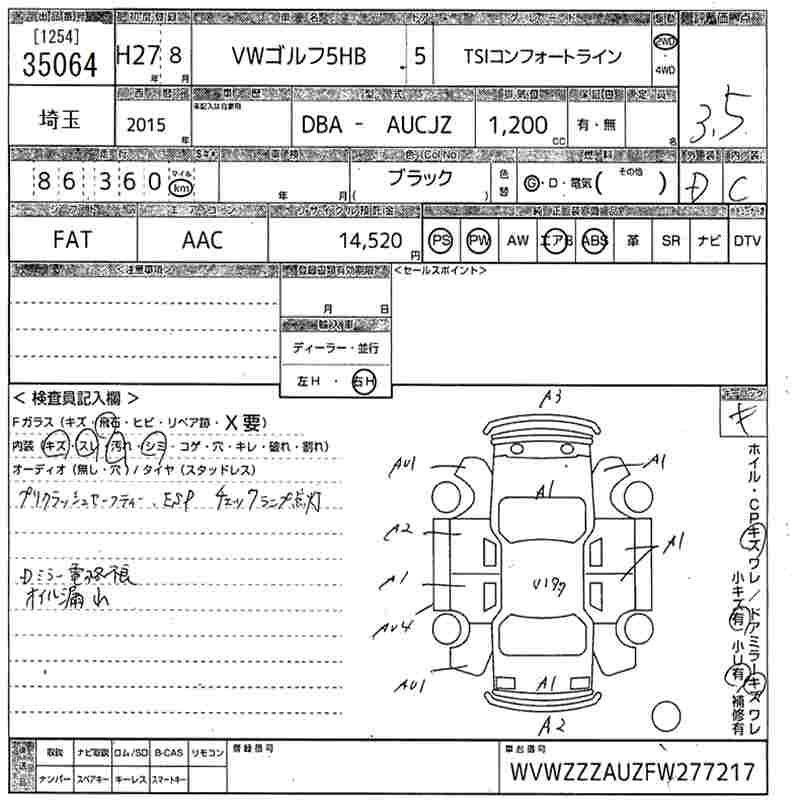 出品番号 初度登録 車名 ドア グレード 駆動 評価点
[1254]
35064
H27年 8月
VWゴルフ5HB
5
TSIコンフォートライン
2WD
・
4WD
3.5
埼玉
西暦年 車歴 型式 排気量 保証書 定員
未記入は自家用
2015年
DBA - AUCJZ
1,200cc
有・無
名
走行 Sキー 車検 色(Col No) 燃料 外装 内装
86360
マイル
km
年 月
ブラック
( )
色替
G・D・電気( その他 )
D
C
シフト エアコン リサイクル預託金 純正装備品
FAT
AAC
14,520円
PS PW AW エアB ABS 革 SR ナビ DTV
<注意事項>
登録書類有効期限
<セールスポイント>
月 日
輸入車
ディーラー・並行
左H ・ 右H
< 検査員記入欄 >
Fガラス (キズ・飛石・ヒビ・リペア跡・X要)
内装 (キズ・スレ・汚れ・シミ・コゲ・穴・キレ・破れ・割れ)
オーディオ (無し・穴) / タイヤ (スタッドレス)
プリクラッシュセーフティー、ESP チェックランプ点灯
Dミラー電格不良
オイル漏れ
A3
AU1
A1
A1
A2
A1
A1
U1サク
AU4
AU1
A1
A2
キ
ホイル・CPキズワレ/ドアミラーキズワレ
小キズ有 小U有/補修有
後送品
取説 ナビ取説 ロム/SD B-CAS リモコン
ナンバー スペアキー キーレス スマートキー
登録番号
車台番号
WVWZZZAUZFW277217